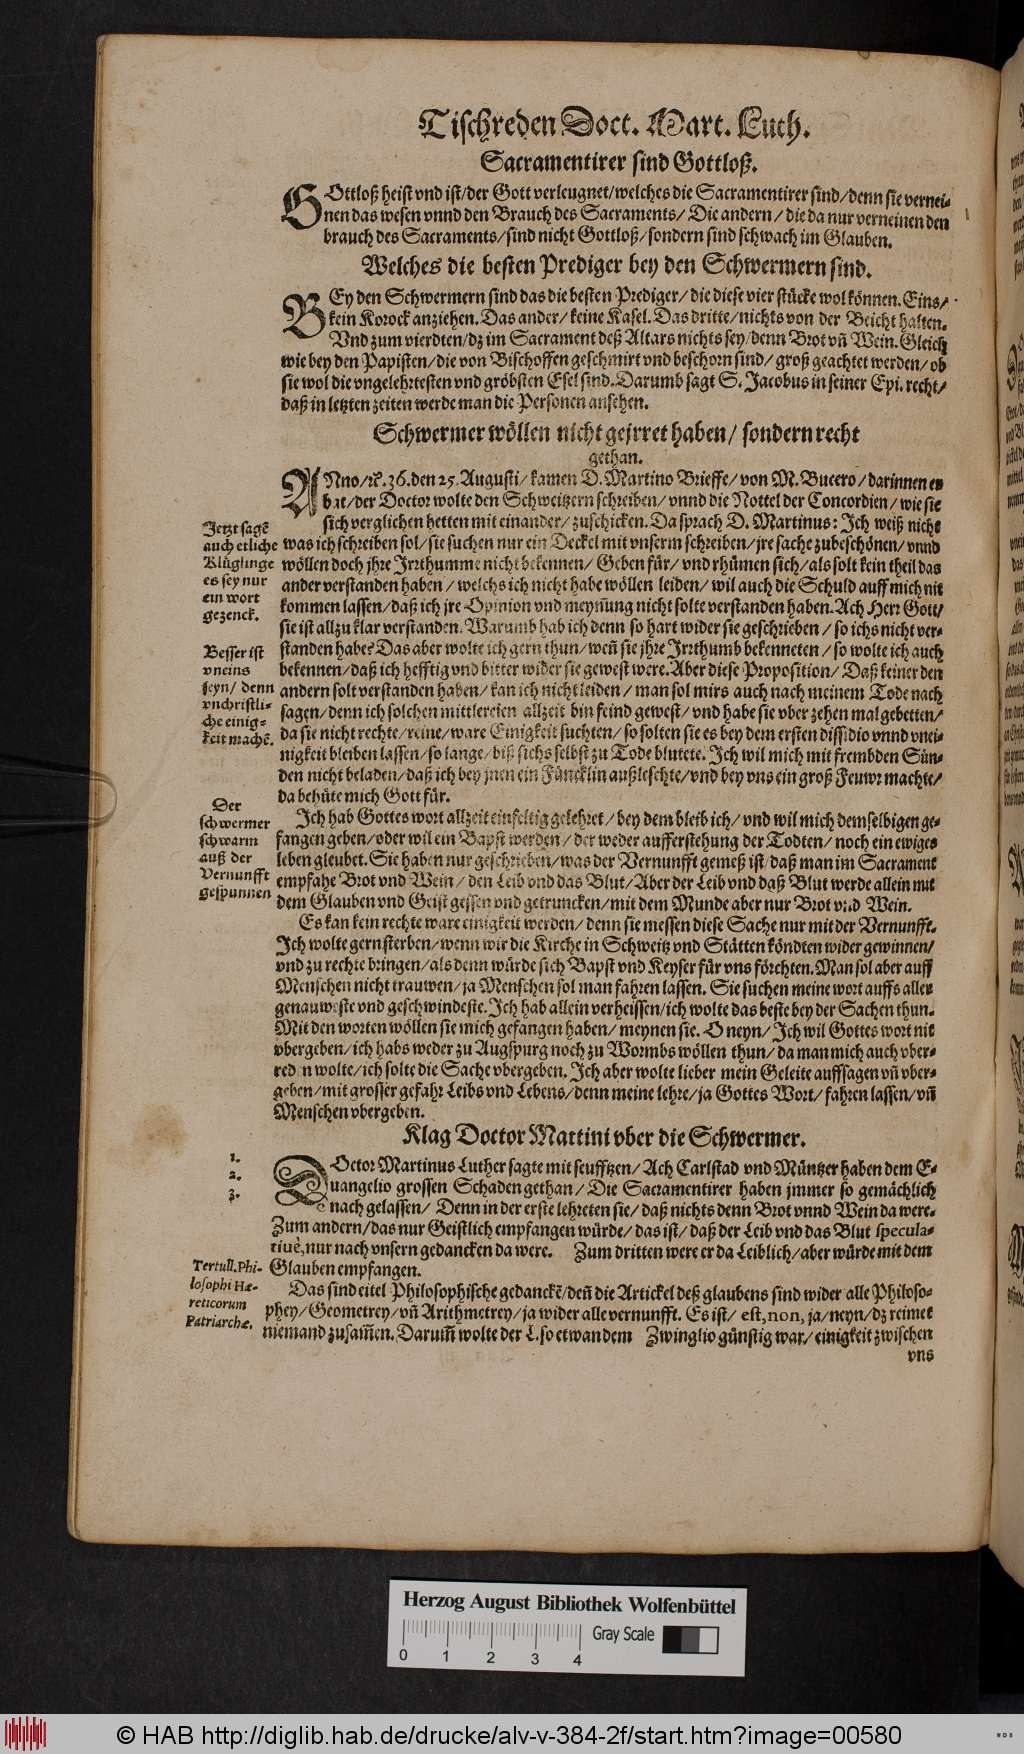 Tischreden Doct. Mart. Luth.
Sacramentirer sind Gottloß.
GOttloß heist vnd ist/der Gott verleugnet/welches die Sacramentirer sind/denn sie vernei-
nen das wesen vnnd den Brauch des Sacraments/ Die andern/ die da nur verneinen den
brauch des Sacraments/sind nicht Gottloß/sondern sind schwach im Glauben.
Welches die besten Prediger bey den Schwermern sind.
BEy den Schwermern sind das die besten Prediger/ die diese vier stücke wol können. Eins/
kein Korock anziehen. Das ander/ keine Kasel. Das dritte/nichts von der Beicht halten.
Vnd zum vierdten/dz im Sacrament deß Altars nichts sey/denn Brot vñ Wein. Gleich
wie bey den Papisten/die von Bischoffen geschmirt vnd beschorn sind/ groß geachtet werden/ob
sie wol die vngelehrtesten vnd gröbsten Esel sind. Darumb sagt S. Jacobus in seiner Epi. recht/
daß in letzten zeiten werde man die Personen ansehen.
Schwermer wöllen nicht gejrret haben/ sondern recht
gethan.
ANno/ꝛc. 36. den 25. Augusti/ kamen D. Martino Brieffe/ von M. Bucero/darinnen er
bat/der Doctor wolte den Schweitzern schreiben/ vnnd die Nottel der Concordien/ wie sie
sich verglichen hetten mit einander/zuschicken. Da sprach D. Martinus: Ich weiß nicht
was ich schreiben sol/sie suchen nur ein Deckel mit vnserm schreiben/jre sache zubeschönen/vnnd
wöllen doch jhre Irrthumme nicht bekennen/ Geben für/vnd rhümen sich/als solt kein theil das
ander verstanden haben/ welchs ich nicht habe wöllen leiden/ wil auch die Schuld auff mich nit
kommen lassen/daß ich jre Opinion vnd meynung nicht solte verstanden haben. Ach Herr Gott/
sie ist allzu klar verstanden. Warumb hab ich denn so hart wider sie geschrieben/ so ichs nicht ver-
standen habe? Das aber wolte ich gern thun/weñ sie jhre Irrthumb bekenneten/ so wolte ich auch
bekennen/daß ich hefftig vnd bitter wider sie gewest were. Aber diese Proposition/ Daß keiner den
andern solt verstanden haben/ kan ich nicht leiden/ man sol mirs auch nach meinem Tode nach
sagen/denn ich solchen mittlereien allzeit bin feind gewest/ vnd habe sie vber zehen mal gebetten/
da sie nicht rechte/reine/ware Einigkeit suchten/ so solten sie es bey dem ersten dissidio vnnd vnei-
nigkeit bleiben lassen/so lange/biß sichs selbst zu Tode blutete. Ich wil mich mit frembden Sün-
den nicht beladen/daß ich bey jnen ein Füncklin außleschte/vnd bey vns ein groß Feuwr machte/
da behüte mich Gott für.
Ich hab Gottes wort allzeit einfeltig gelehret/ bey dem bleib ich/ vnd wil mich demselbigen ge-
fangen geben/oder wil ein Bapst werden/ der weder aufferstehung der Todten/ noch ein ewiges
leben gleubet. Sie haben nur geschrieben/was der Vernunfft gemeß ist/daß man im Sacrament
empfahe Brot vnd Wein/ den Leib vnd das Blut/Aber der Leib vnd daß Blut werde allein mit
dem Glauben vnd Geist gessen vnd getruncken/mit dem Munde aber nur Brot vnd Wein.
Es kan kein rechte ware einigkeit werden/ denn sie messen diese Sache nur mit der Vernunfft.
Ich wolte gern sterben/wenn wir die Kirche in Schweitz vnd Stätten köndten wider gewinnen/
vnd zu rechte bringen/als denn würde sich Bapst vnd Keyser für vns förchten. Man sol aber auff
Menschen nicht trauwen/ja Menschen sol man fahren lassen. Sie suchen meine wort auffs aller
genauweste vnd geschwindeste. Ich hab allein verheissen/ich wolte das beste bey der Sachen thun.
Mit den worten wöllen sie mich gefangen haben/ meynen sie. O neyn/ Ich wil Gottes wort nit
vbergeben/ich habs weder zu Augspurg noch zu Wormbs wöllen thun/da man mich auch vber-
reden wolte/ich solte die Sache vbergeben. Ich aber wolte lieber mein Geleite auffsagen vñ vber-
geben/mit grosser gefahr Leibs vnd Lebens/denn meine lehre/ja Gottes Wort/ fahren lassen/vñ
Menschen vbergeben.
Klag Doctor Martini vber die Schwermer.
DOctor Martinus Luther sagte mit seufftzen/ Ach Carlstad vnd Müntzer haben dem E-
uangelio grossen Schaden gethan/ Die Sacramentirer haben jmmer so gemächlich
nach gelassen/ Denn in der erste lehreten sie/ daß nichts denn Brot vnnd Wein da were.
Zum andern/das nur Geistlich empfangen würde/das ist/ daß der Leib vnd das Blut specula-
tiuè, nur nach vnsern gedancken da were. Zum dritten were er da Leiblich/aber würde mit dem
Glauben empfangen.
Das sind eitel Philosophische gedanckẽ/deñ die Artickel deß glaubens sind wider alle Philoso-
phey/Geometrey/vñ Arithmetrey/ja wider alle vernunfft. Es ist/ est, non, ja/neyn/dz reimet
niemand zusam̃en. Darum̃ wolte der L. so etwan dem Zwinglio günstig war/einigkeit zwischen
vns
Jetzt sagẽ
auch etliche
Klüglinge
es sey nur
ein wort
gezenck.
Besser ist
vneins
seyn/ denn
vnchristli-
che einig-
keit machẽ.
Der
schwermer
schwarm
auß der
Vernunfft
gespunnen
1.
2.
3.
Tertull. Phi-
losophi Hæ-
reticorum
Patriarchæ.
Herzog August Bibliothek Wolfenbüttel
0 1 2 3 4
Gray Scale
© HAB http://diglib.hab.de/drucke/alv-v-384-2f/start.htm?image=00580